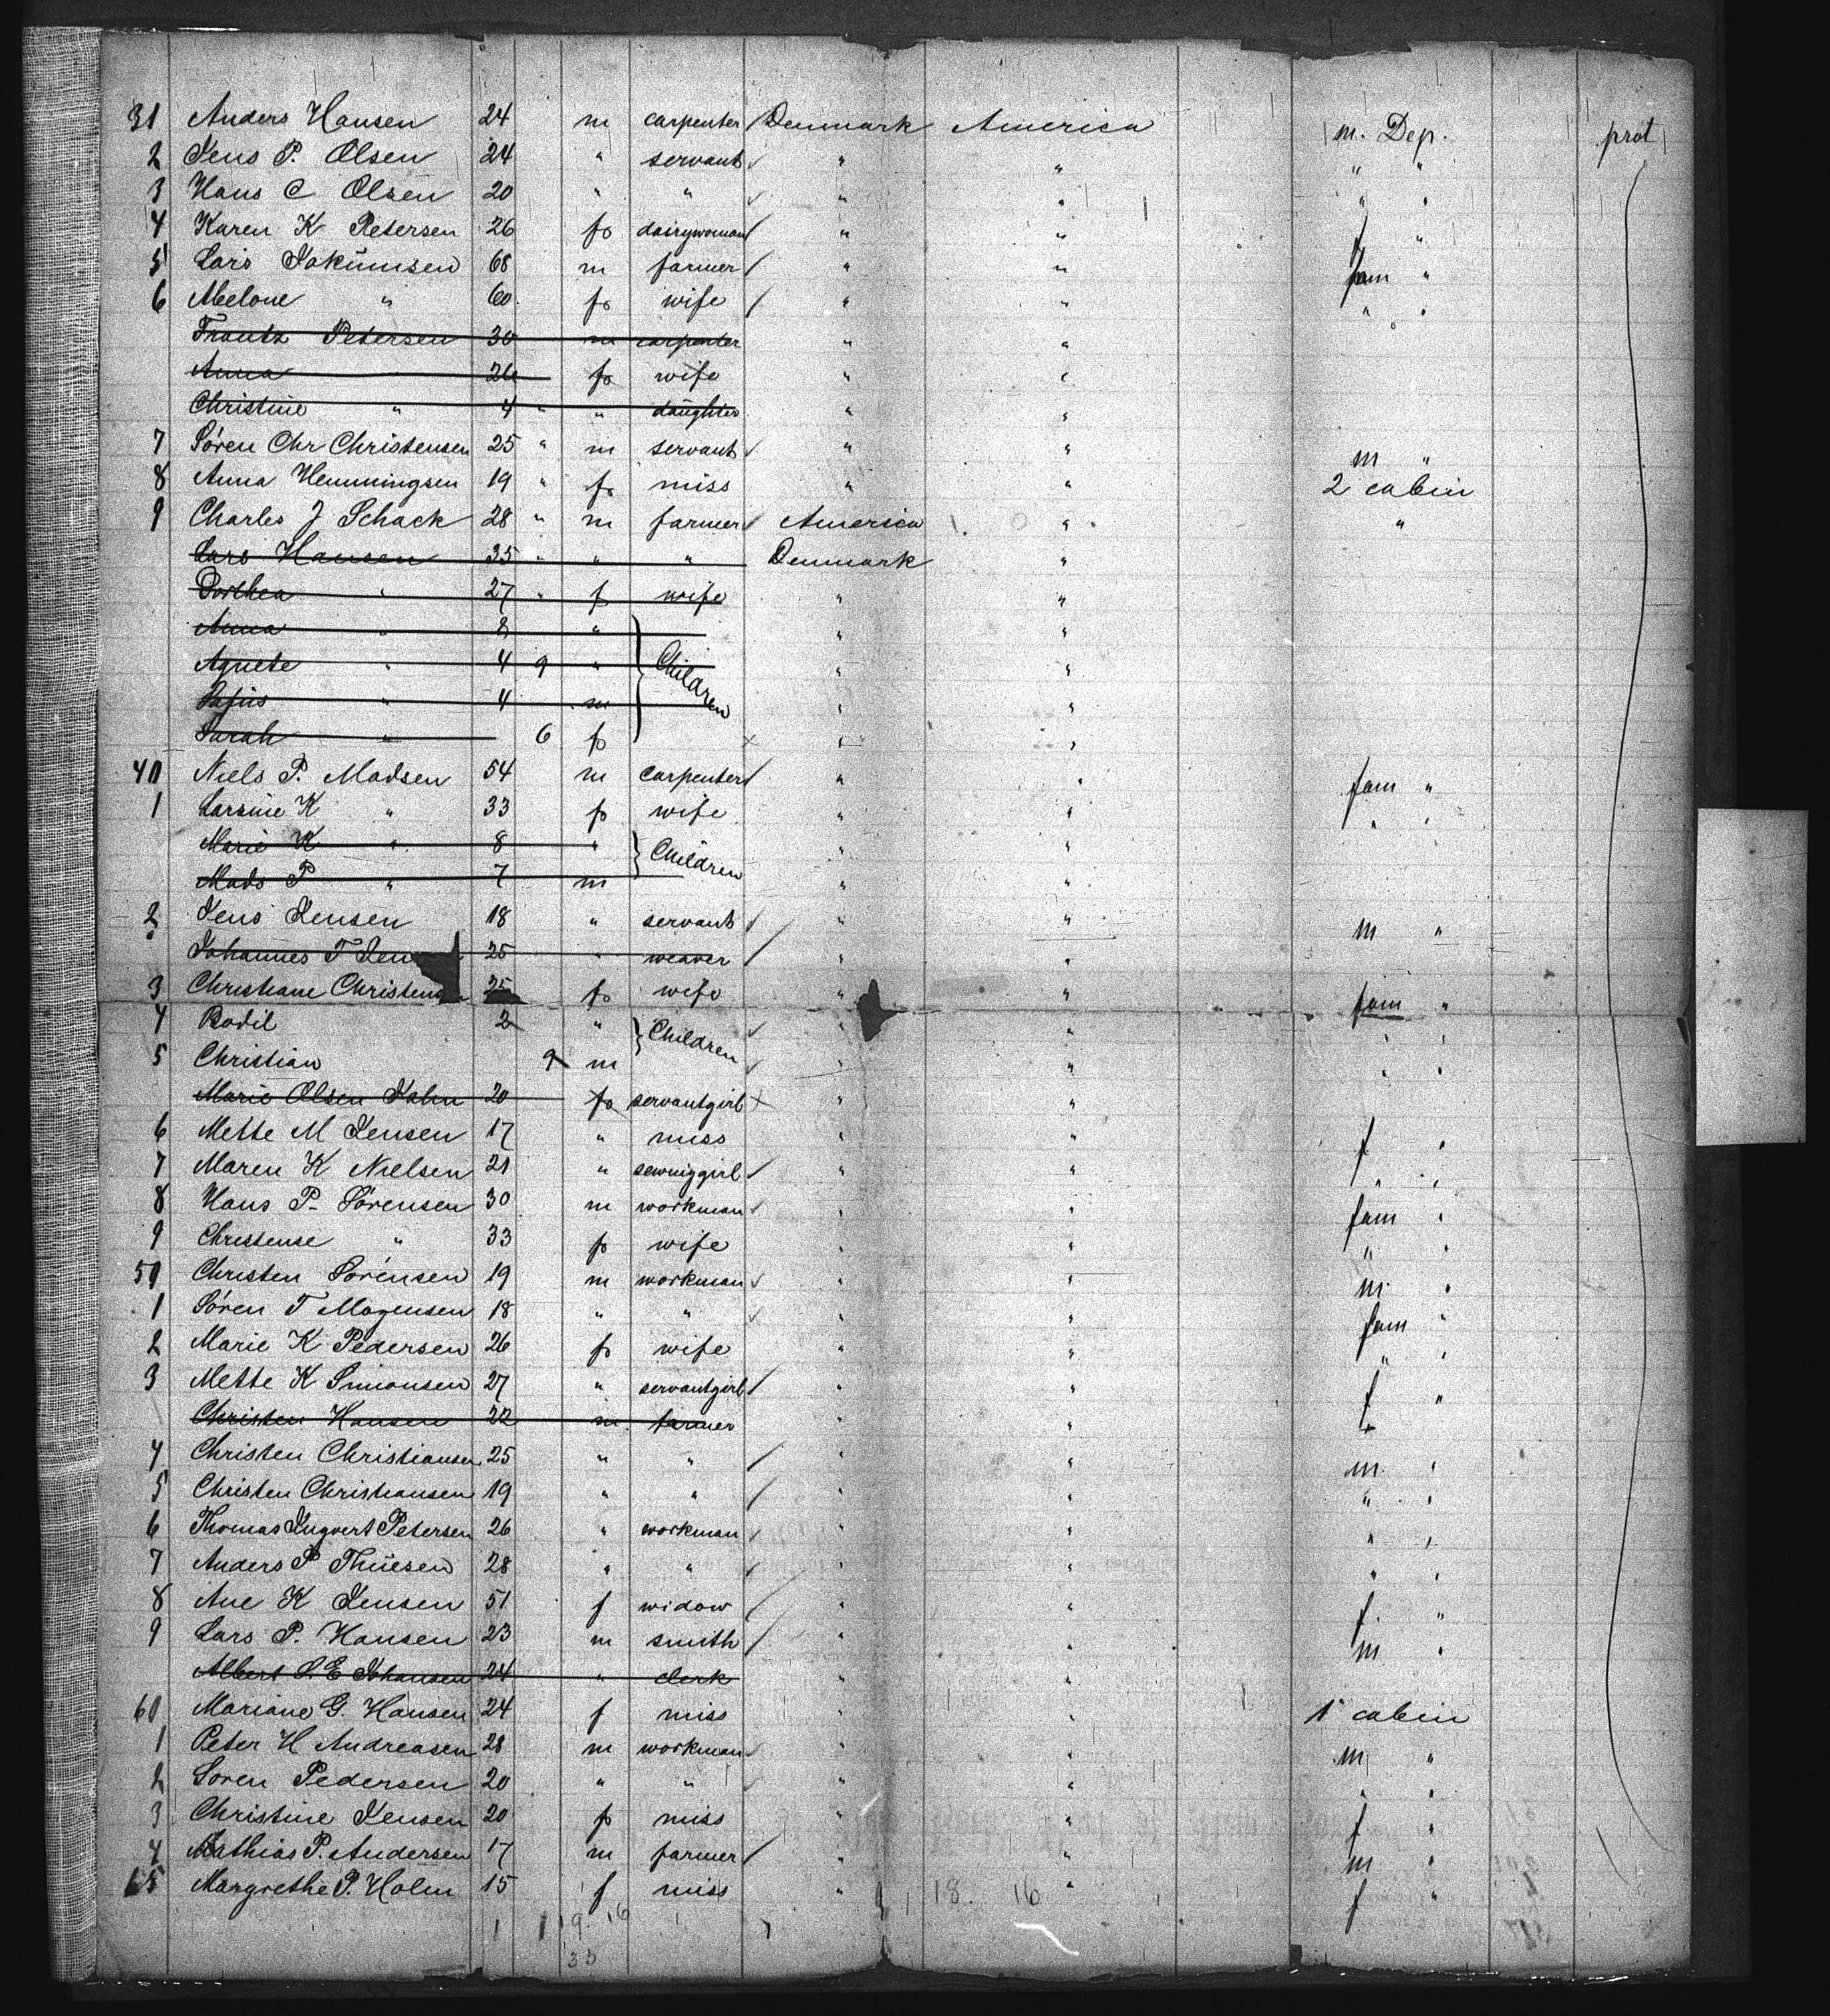 31 Anders Hansen 24 m carpenter Denmark America m. Dep. prot
2 Jens P. Olsen 24 " servant " " " "
3 Hans C Olsen 20 " " " " " "
4 Karen K Petersen 26 f dairywoman " " f "
5 Lars Jakumsen 68 m farmer " " fam "
6 Melone " 60 f wife " " " "
Frantz Petersen 30 m carpenter " "
Anna 26 f wife " "
Christine " 4 " " daughter " "
7 Søren Chr Christensen 25 " m servant " " m "
8 Anna Hemmingsen 19 " f miss " " 2 cabin
9 Charles J Schack 28 " m farmer America " "
Lars Hansen 35 " " " Denmark "
Dorthea " 27 " f wife " "
Anna " 8 " " "
Agnete " 4 9 " Children " "
" 4 m " "
Sarah " 6 f " "
40 Niels P. Madsen 54 m carpenter " " fam "
1 Larsine K " 33 f wife " " " "
Marie K " 8 " Children " "
Mads P " 7 m " "
2 Jens Jensen 18 " servant " " m "
Johannes T Jen 25 " weaver " "
3 Christiane Christensen 25 f wife " " fam "
4 Bodil 2 " Children " " " "
5 Christian 9 m " " " "
Marie Olsen Jahn 20 f servantgirl " "
6 Mette M Jensen 17 " miss " " f "
7 Maren K Nielsen 21 " sewinggirl " " " "
8 Hans P. Sørensen 30 m workman " " fam "
9 Christense " 33 f wife " " " "
50 Christen Sørensen 19 m workman " " m "
1 Søren T Mogensen 18 " " " " fam "
2 Marie K Pedersen 26 f wife " " " "
3 Mette K Simonsen 27 " servantgirl " " f "
Christen Hansen 22 m farmer " "
4 Christen Christiansen 25 " " " " m "
5 Christen Christiansen 19 " " " " " "
6 Thomas Ingvert Petersen 26 " workman " " " "
7 Anders P Thuesen 28 " " " " " "
8 Ane K Jensen 51 f widow " " f "
9 Lars P. Hansen 23 m smith " " m "
Albert S. E Johansen 24 " clerk " "
60 Mariane G. Hansen 24 f miss " " 1 cabin
1 Peter H Andreasen 28 m workman " " m "
2 Soren Pedersen 20 " " " " " "
3 Christine Jensen 20 f miss " " f "
4 Mathias P. Andersen 17 m farmer " " m "
65 Margrethe P. Holm 15 f miss " " f "
18 16
1 1 19 16
33